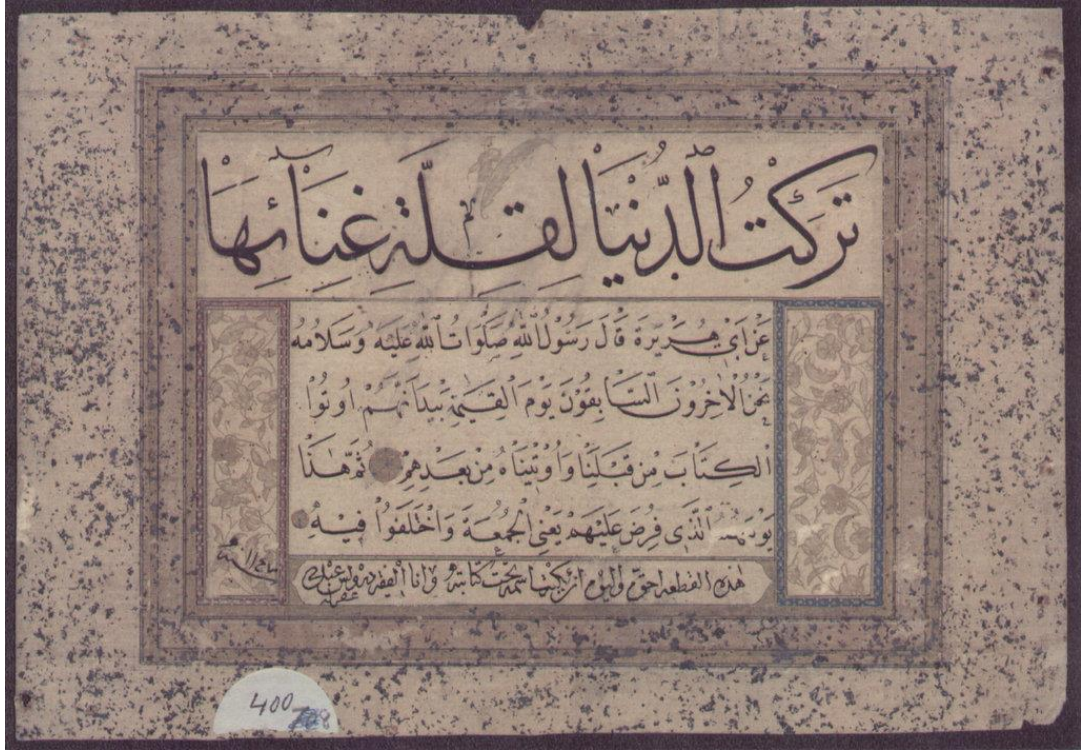 تَرَكْتُ الدُّنْيَا لِقِلَّةِ غِنَائِهَا
عَنْ اَبِي هُرَيْرَةَ قَالَ رَسُولُ اللّٰهِ صَلَوَاتُ اللّٰهِ عَلَيْهِ وَسَلَامُهُ
نَحْنُ الْاٰخِرُونَ السَّابِقُونَ يَوْمَ الْقِيٰمَةِ بَيْدَ اَنَّهُمْ اُوتُوا
الْكِتَابَ مِنْ قَبْلِنَا وَاُوتِينَاهُ مِنْ بَعْدِهِمْ ثُمَّ هٰذَا
يَوْمُهُمُ الَّذِي فُرِضَ عَلَيْهِمْ يَعْنِي الْجُمُعَةَ وَاخْتَلَفُوا فِيهِ
هذه القطعه وانا الفقير درويش علي
400